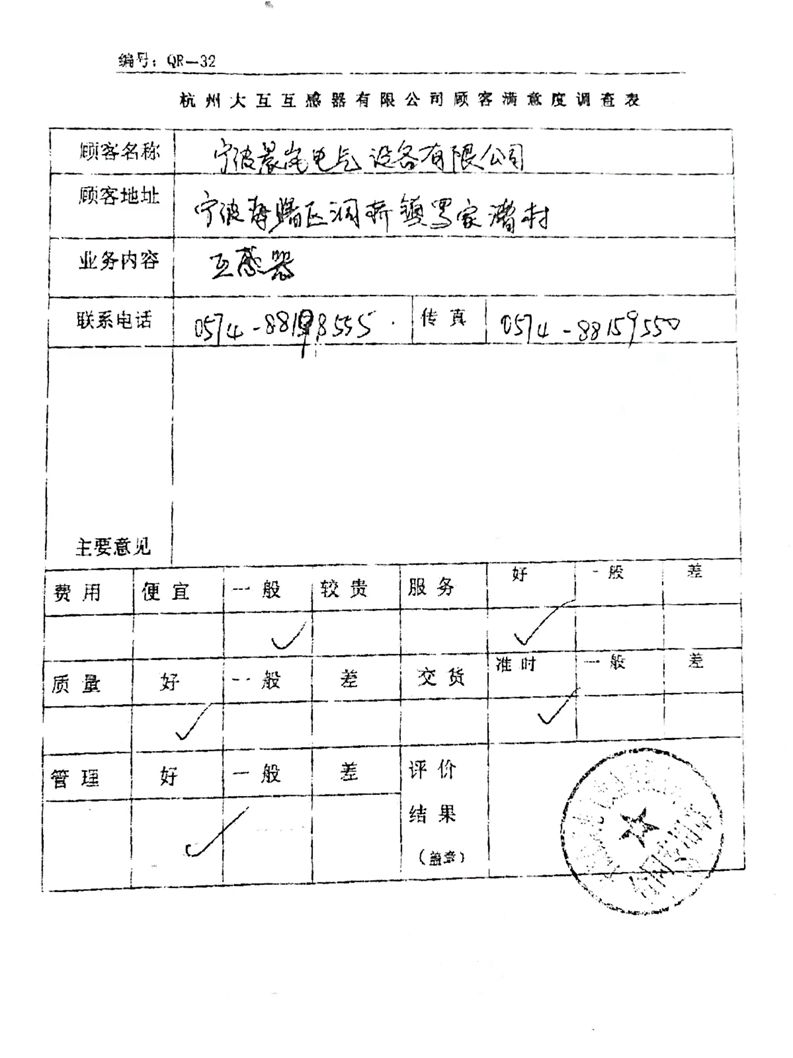 编号：QR—32
杭州大互互感器有限公司顾客满意度调查表
顾客名称 宁波晨 电气设备有限公司
顾客地址 宁波海曙区洞桥镇 家潜村
业务内容 互感器
联系电话 0574-88198555 传真 0574-88159550
主要意见
费用 便宜 一般 较贵 服务 好 一般 差
✓ ✓
质量 好 一般 差 交货 准时 一般 差
✓ ✓
管理 好 一般 差 评价
结果
✓
（盖章）
合同专用章